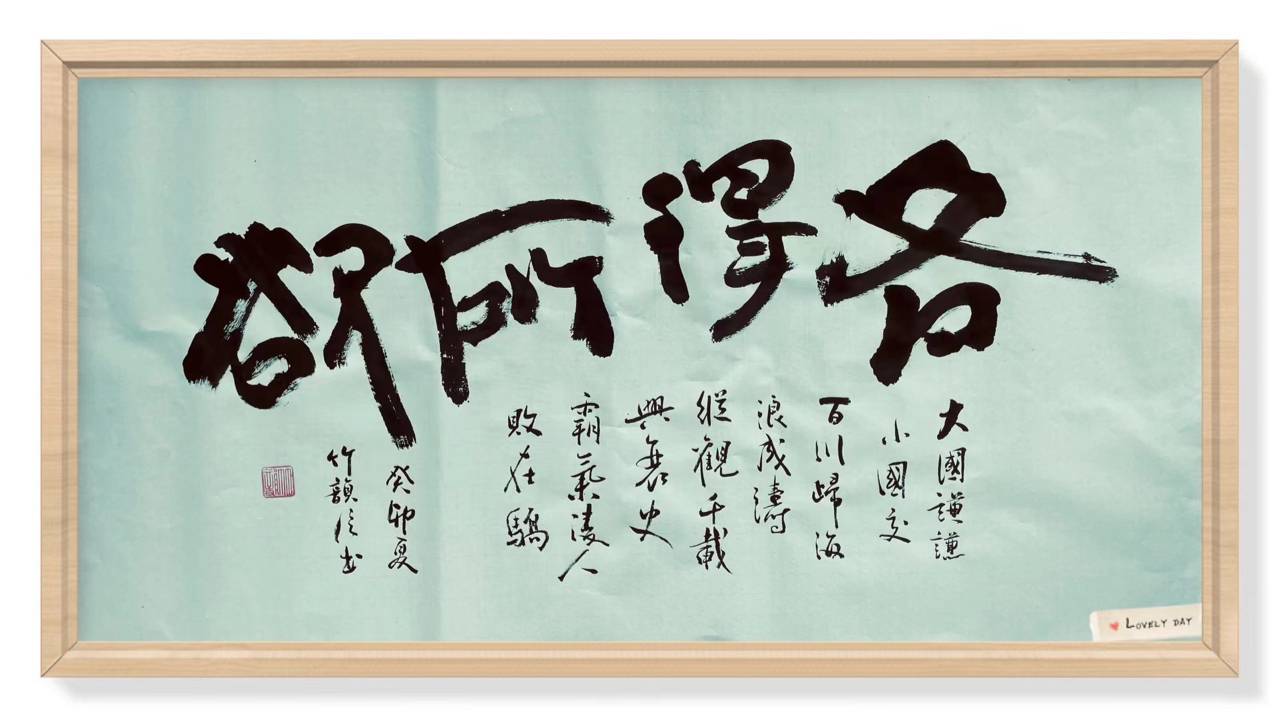 各得所欲
大國謙謙
小國交
百川歸海
浪成濤
縱觀千載
興衰史
霸氣凌人
敗在驕
癸卯夏
竹韻
Lovely day